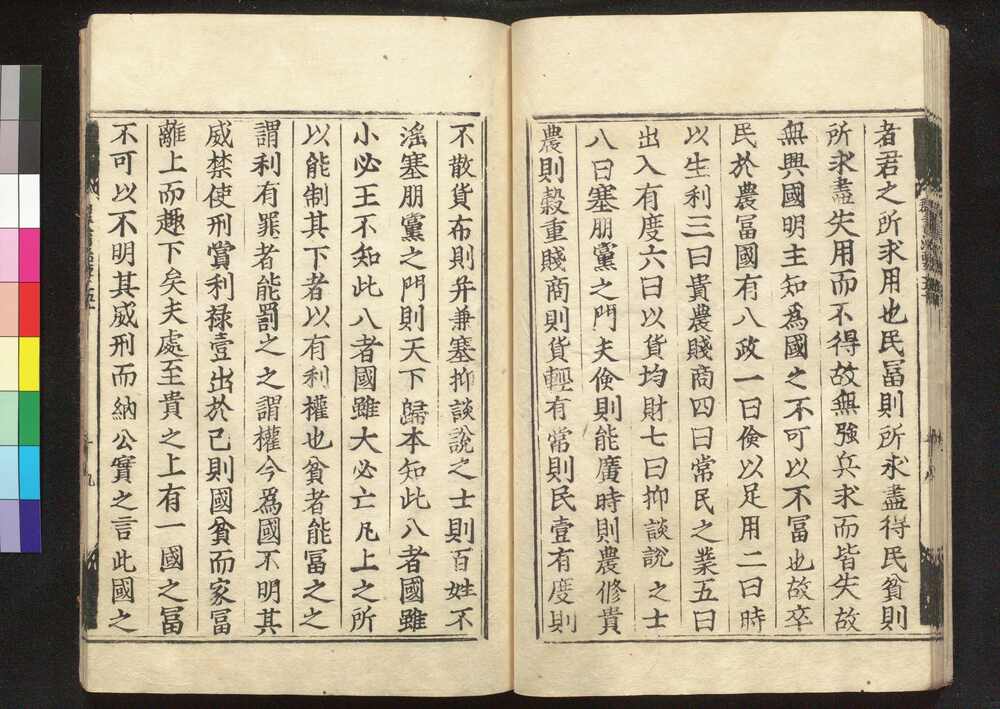 者君之所求用也民冨則所求盡得民貧則
所求盡失用而不得故無強兵求而皆失故
無興國明主知為國之不可以不冨也故卒
民於農冨國有八政一曰儉以足用二曰時
以生利三曰貴農賤商四曰常民之業五曰
出入有度六曰以貨均財七曰抑談說之士
八曰塞朋黨之門夫儉則能廣時則農修貴
農則穀重賤商則貨輕有常則民壹有度則
不散貨布則弁兼塞抑談說之士則百姓不
淫塞朋黨之門則天下歸本知此八者國雖
小必王不知此八者國雖大必亡凡上之所
以能制其下者以有利權也貧者能冨之之
謂利有罪者能罰之之謂權今為國不明其
威禁使刑賞利禄壹出於己則國貧而家冨
離上而趣下矣夫處至貴之上有一國之冨
不可以不明其威刑而納公實之言此國之